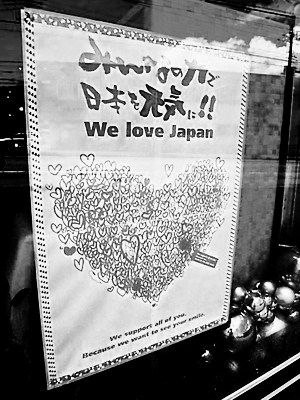 で
日本を元気に!!
We love Japan
We support all of you,
Because we want to see your smile.